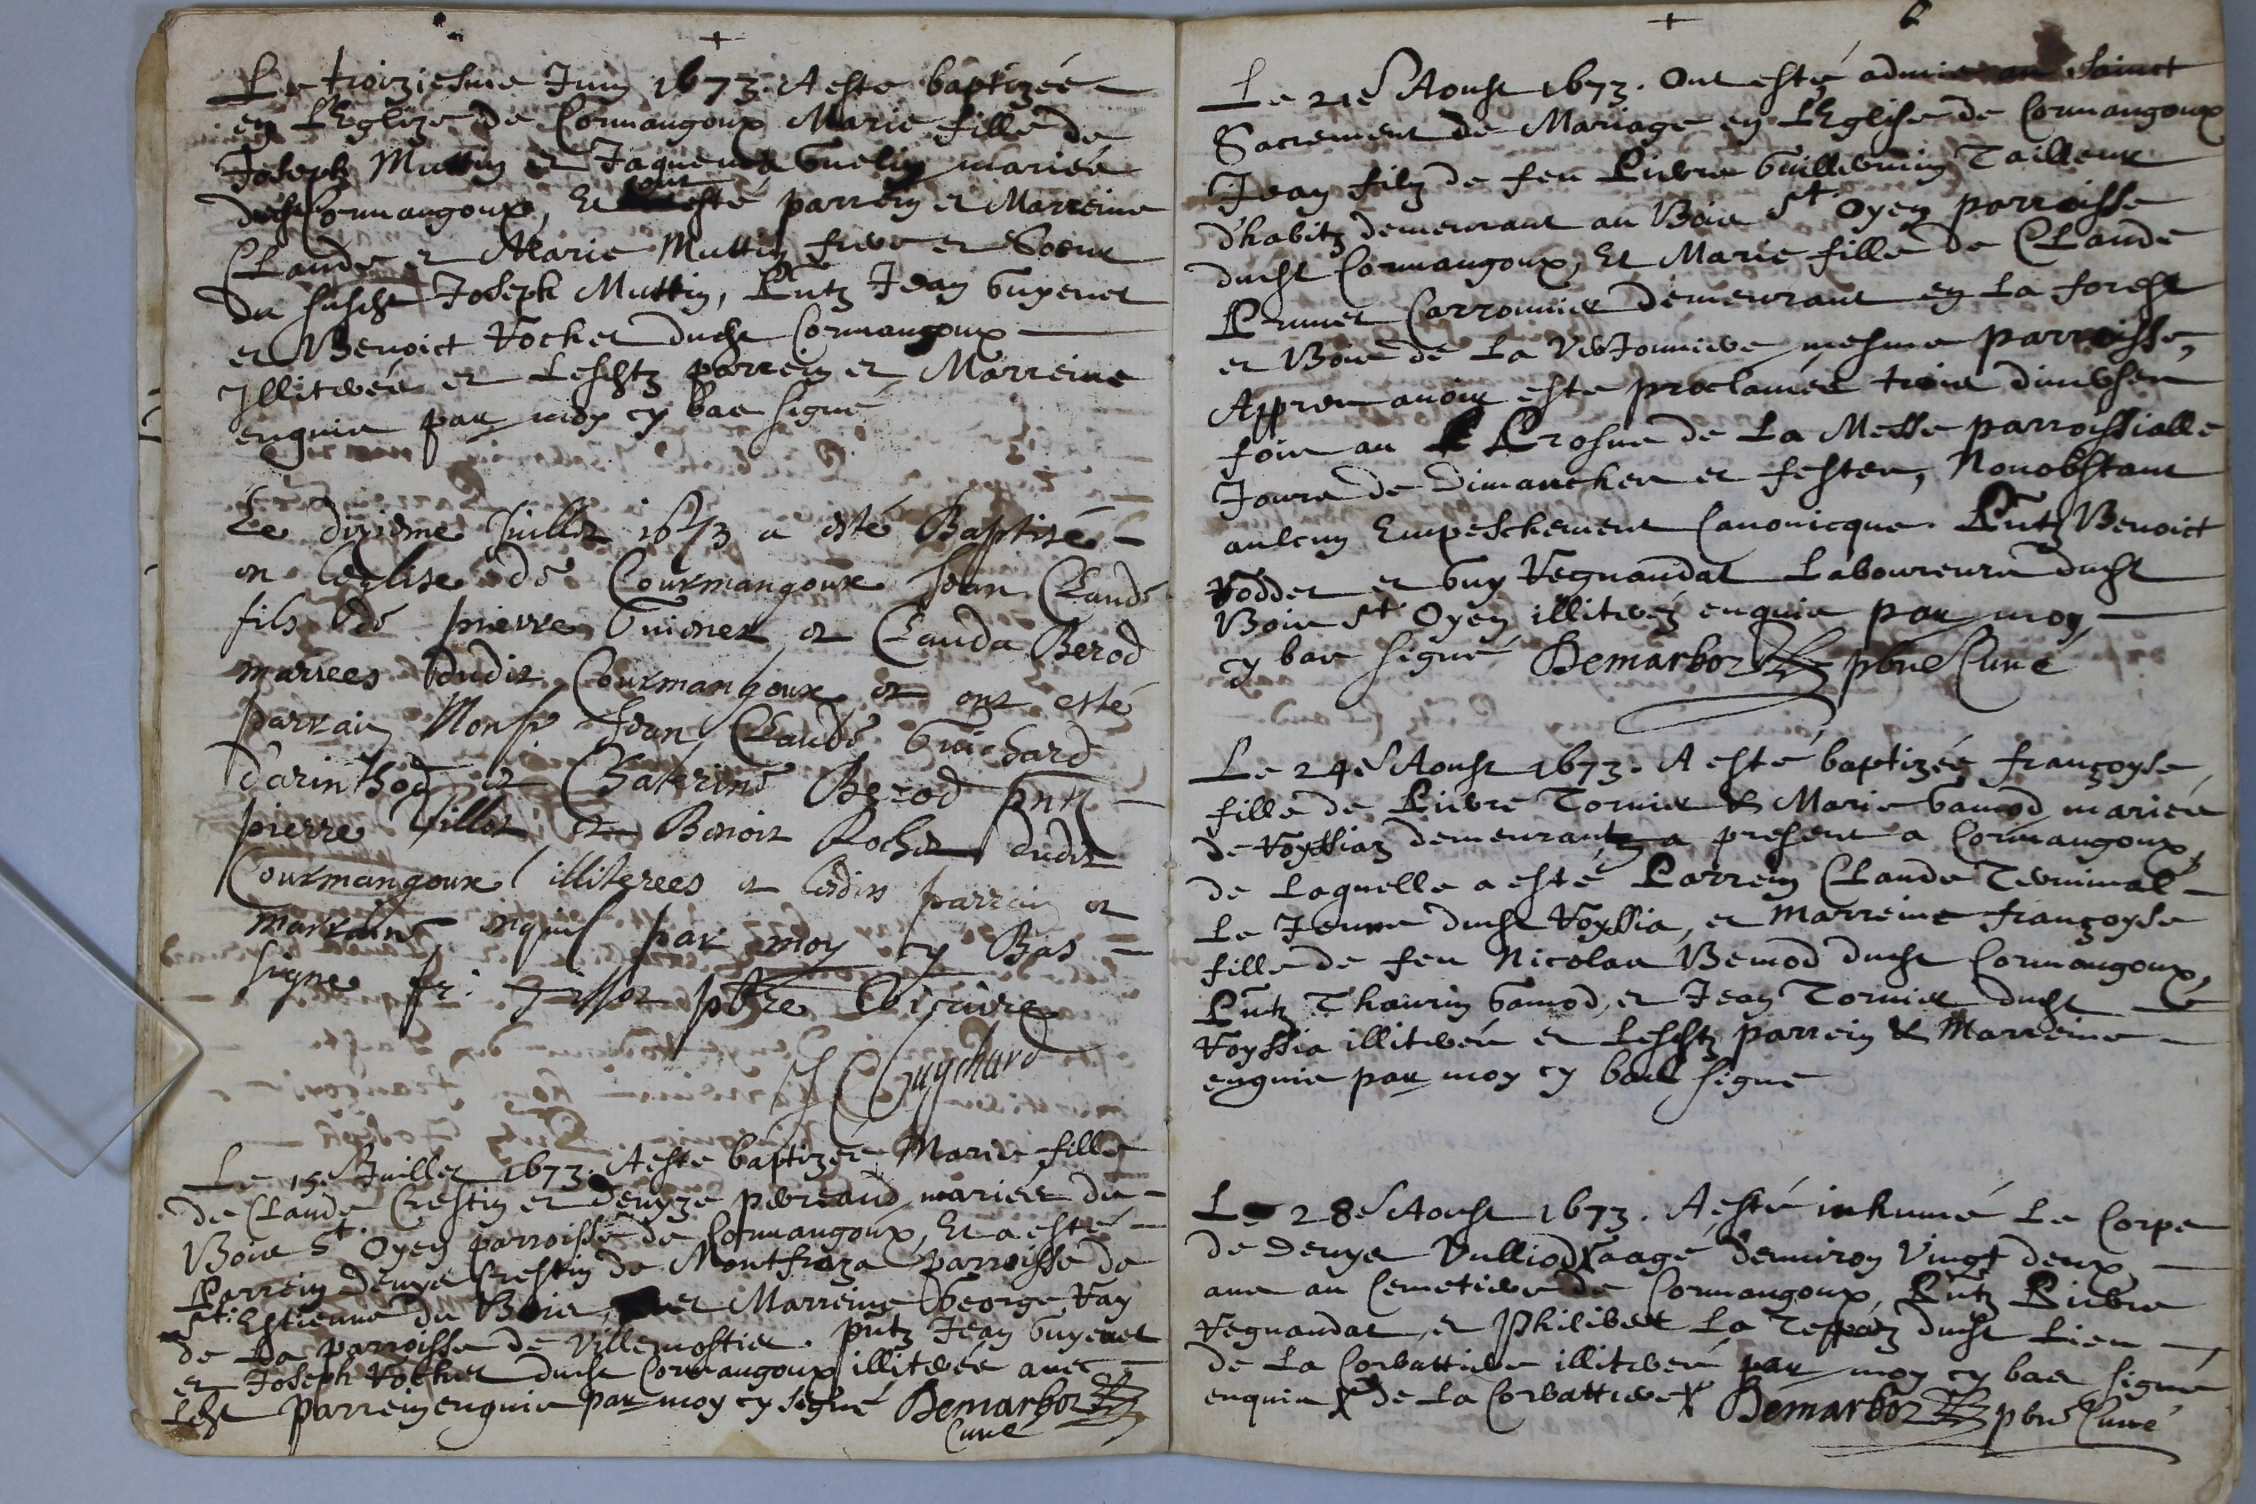 Le troiziesme Juin 1673. A este baptizée
en L'Eglize de Cormangoux Marie fille de
Joseph Muttin et Jaquema Guelin mariés
duch Cormangoux, Et ont esté parrein et Marreine
Claude et Marie Muttin frere et Soeur
du susch Joseph Muttin, Pntz Jean Guyenet
et Benoict Rochet duch Cormangoux
Illiterés et leschtz parrein et Marreine
enquis par moy cy bas signé
Le dixieme Juillet 1673 a esté Baptisé
en l'eglise de Courmangoux Jean Claude
fils de pierre Guienet et Clauda Berod
mariees dudit Courmangoux et ont esté
parrain Monsr Jean Claude Guichard
d'arinthod et Chaterine Berod pnts
pierre Fillot et Benoit Rochet dudit
Courmangoux illiterees et lesdits parrain et
marraine enquis par moy cy Bas
signe fr: ptre Vicaire
J C Guychard
Le 15e Juillet 1673. A este baptizée Marie fille
de Claude Crestin et Denyze pereaud mariés du
Bois St Oyen parroisse de Cormangoux, Et a esté
Parrein Denys Crestin de Montfraza parroisse de
St: Estienne du Bois, et Marreine George Ray
de La parroisse de Villemostier. pntz Jean Guyenet
et Joseph Rochet duch Cormangoux illiterés avec
Lcht parrein enquis par moy cy signé Demarboz
Curé
+
6
Le 21e Aoust 1673. Ont esté admis au Sainct
Sacrement de Mariage en L'Eglise de Cormangoux
Jean filz de feu Pierre Guillermin Tailleur
d'habitz demeurant au Bois St Oyen parroisse
duch Cormangoux, Et Marie fille de Claude
Prunet Carronnier demeurant en la forest
et Bois de La Verjonniere mesme parroisse,
Appres avoir esté proclamés trois diverses
fois au Prosne de La Messe parroissialle
Jours de Dimanches et festes, Nonobstant
aulcun Empeschement Canonicque. Pntz Benoict
Roddet et Guy Regnaudat Laboureurs duch
Bois St Oyen illiterez enquis par moy
cy bas signé Demarboz pbre Curé
Le 24e Aoust 1673. A esté baptizée françoyse
fille de Pierre Tornier & Marie Gamod mariés
de Royssiaz demeurantz a present a Cormangoux,
de Laquelle a esté Parrein Claude Terminal
Le Jeune duch Royssia, et Marreine françoyse
fille de feu Nicolas Bemod duch Cormangoux,
Pntz Thaurin Gamod, et Jean Tornier duch
Royssia illiterés et Leschtz parrein & Marreine
enquis par moy cy bas signe
Le 28e Aoust 1673. A esté inhumé Le Corps
de Denys Vulliod aagé denviron Vingt deux
ans au Cemetiere de Cormangoux, Pntz Pierre
Regnaudat, et Philibert La Teppaz duch Lieu
de La Corbattiere illiterés par moy cy bas signé
enquis de La Corbattiere Demarboz pbre Curé